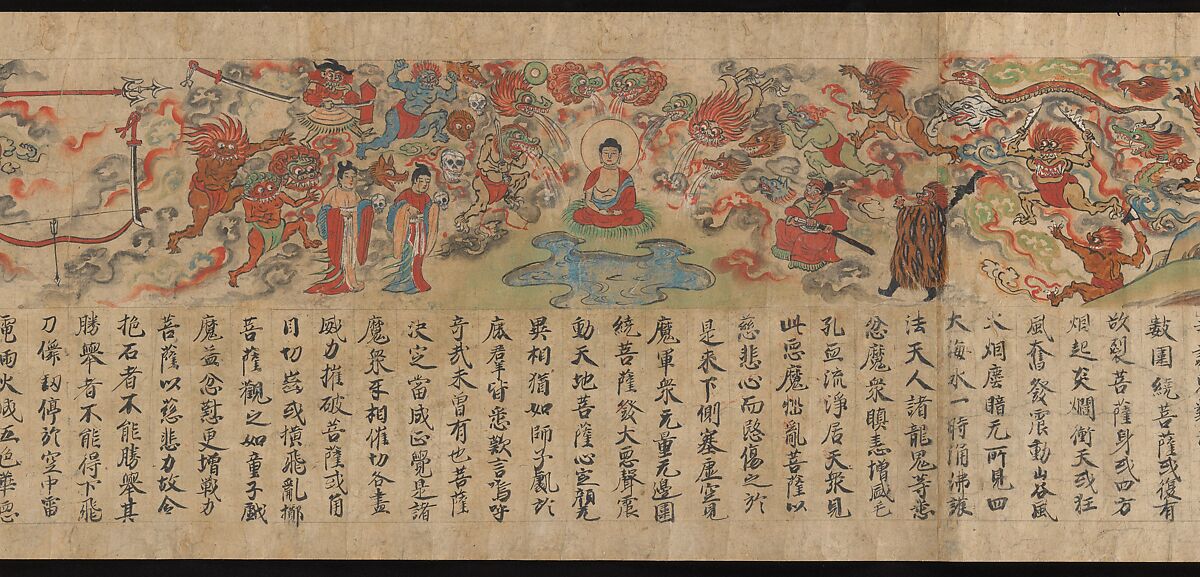 數圍繞菩薩或復有
欲裂菩薩身或四方
烟起炎爛衝天或狂
風奮發震動山谷風
火烟塵暗无所見四
大海水一時涌沸護
法天人諸龍鬼等悉
忿魔衆瞋恚增盛毛
孔血流淨居天衆見
此惡魔惱亂菩薩以
慈悲心而愍傷之於
是來下側塞虛空見
魔軍衆无量无邊圍
繞菩薩發大惡聲震
動天地菩薩心定顏无
異相猶如師子處於
鹿群皆悉歎言嗚呼
奇哉未曾有也菩薩
決定當成正覺是諸
魔衆互相催切各盡
威力摧破菩薩或角
目切齒或橫飛亂擲
菩薩觀之如童子戲
魔益忿懟更增戰力
菩薩以慈悲力故令
抱石者不能勝舉其
勝舉者不能得下飛
刀儛釰停於空中雷
電雨火成五色華惡